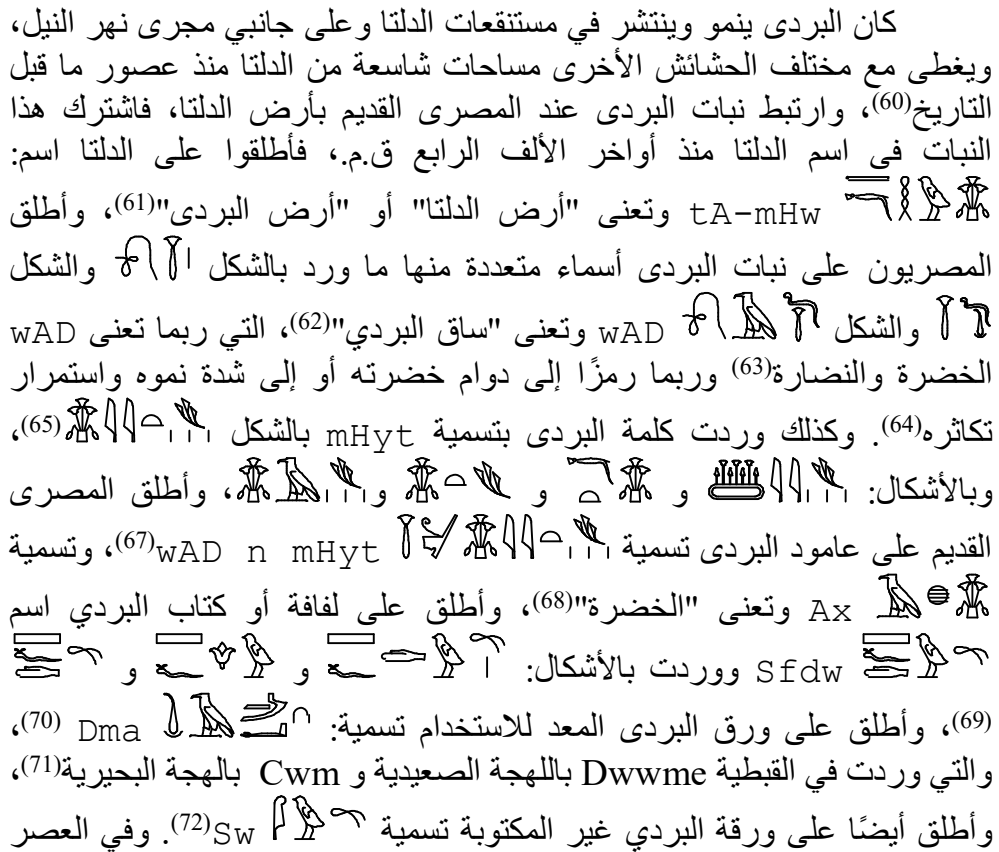 كان البردى ينمو وينتشر في مستنقعات الدلتا وعلى جانبي مجرى نهر النيل،
ويغطى مع مختلف الحشائش الأخرى مساحات شاسعة من الدلتا منذ عصور ما قبل
التاريخ(60)، وارتبط نبات البردى عند المصرى القديم بأرض الدلتا، فاشترك هذا
النبات فى اسم الدلتا منذ أواخر الألف الرابع ق.م.، فأطلقوا على الدلتا اسم:
tA-mHw وتعنى "أرض الدلتا" أو "أرض البردى"(61)، وأطلق
المصريون على نبات البردى أسماء متعددة منها ما ورد بالشكل والشكل
والشكل wAD وتعنى "ساق البردي"(62)، التي ربما تعنى wAD
الخضرة والنضارة(63) وربما رمزًا إلى دوام خضرته أو إلى شدة نموه واستمرار
تكاثره(64). وكذلك وردت كلمة البردى بتسمية mHyt بالشكل (65)،
وبالأشكال: و و و، وأطلق المصرى
القديم على عامود البردى تسمية wAD n mHyt(67)، وتسمية
Ax وتعنى "الخضرة"(68)، وأطلق على لفافة أو كتاب البردي اسم
Sfdw ووردت بالأشكال: و و
(69)، وأطلق على ورق البردى المعد للاستخدام تسمية: Dma (70)،
والتي وردت في القبطية Dwwme باللهجة الصعيدية و Cwm بالهجة البحيرية(71)،
وأطلق أيضًا على ورقة البردي غير المكتوبة تسمية Sw(72). وفي العصر